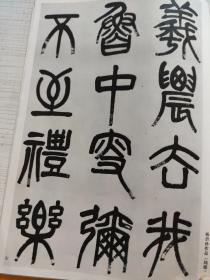 羲農去我
魯中叟彌
不至禮樂